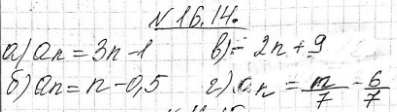 №16.14.
а) an = 3n-1 в) - 2n+9
б) an = n-0,5 г) an = n/7 - 6/7